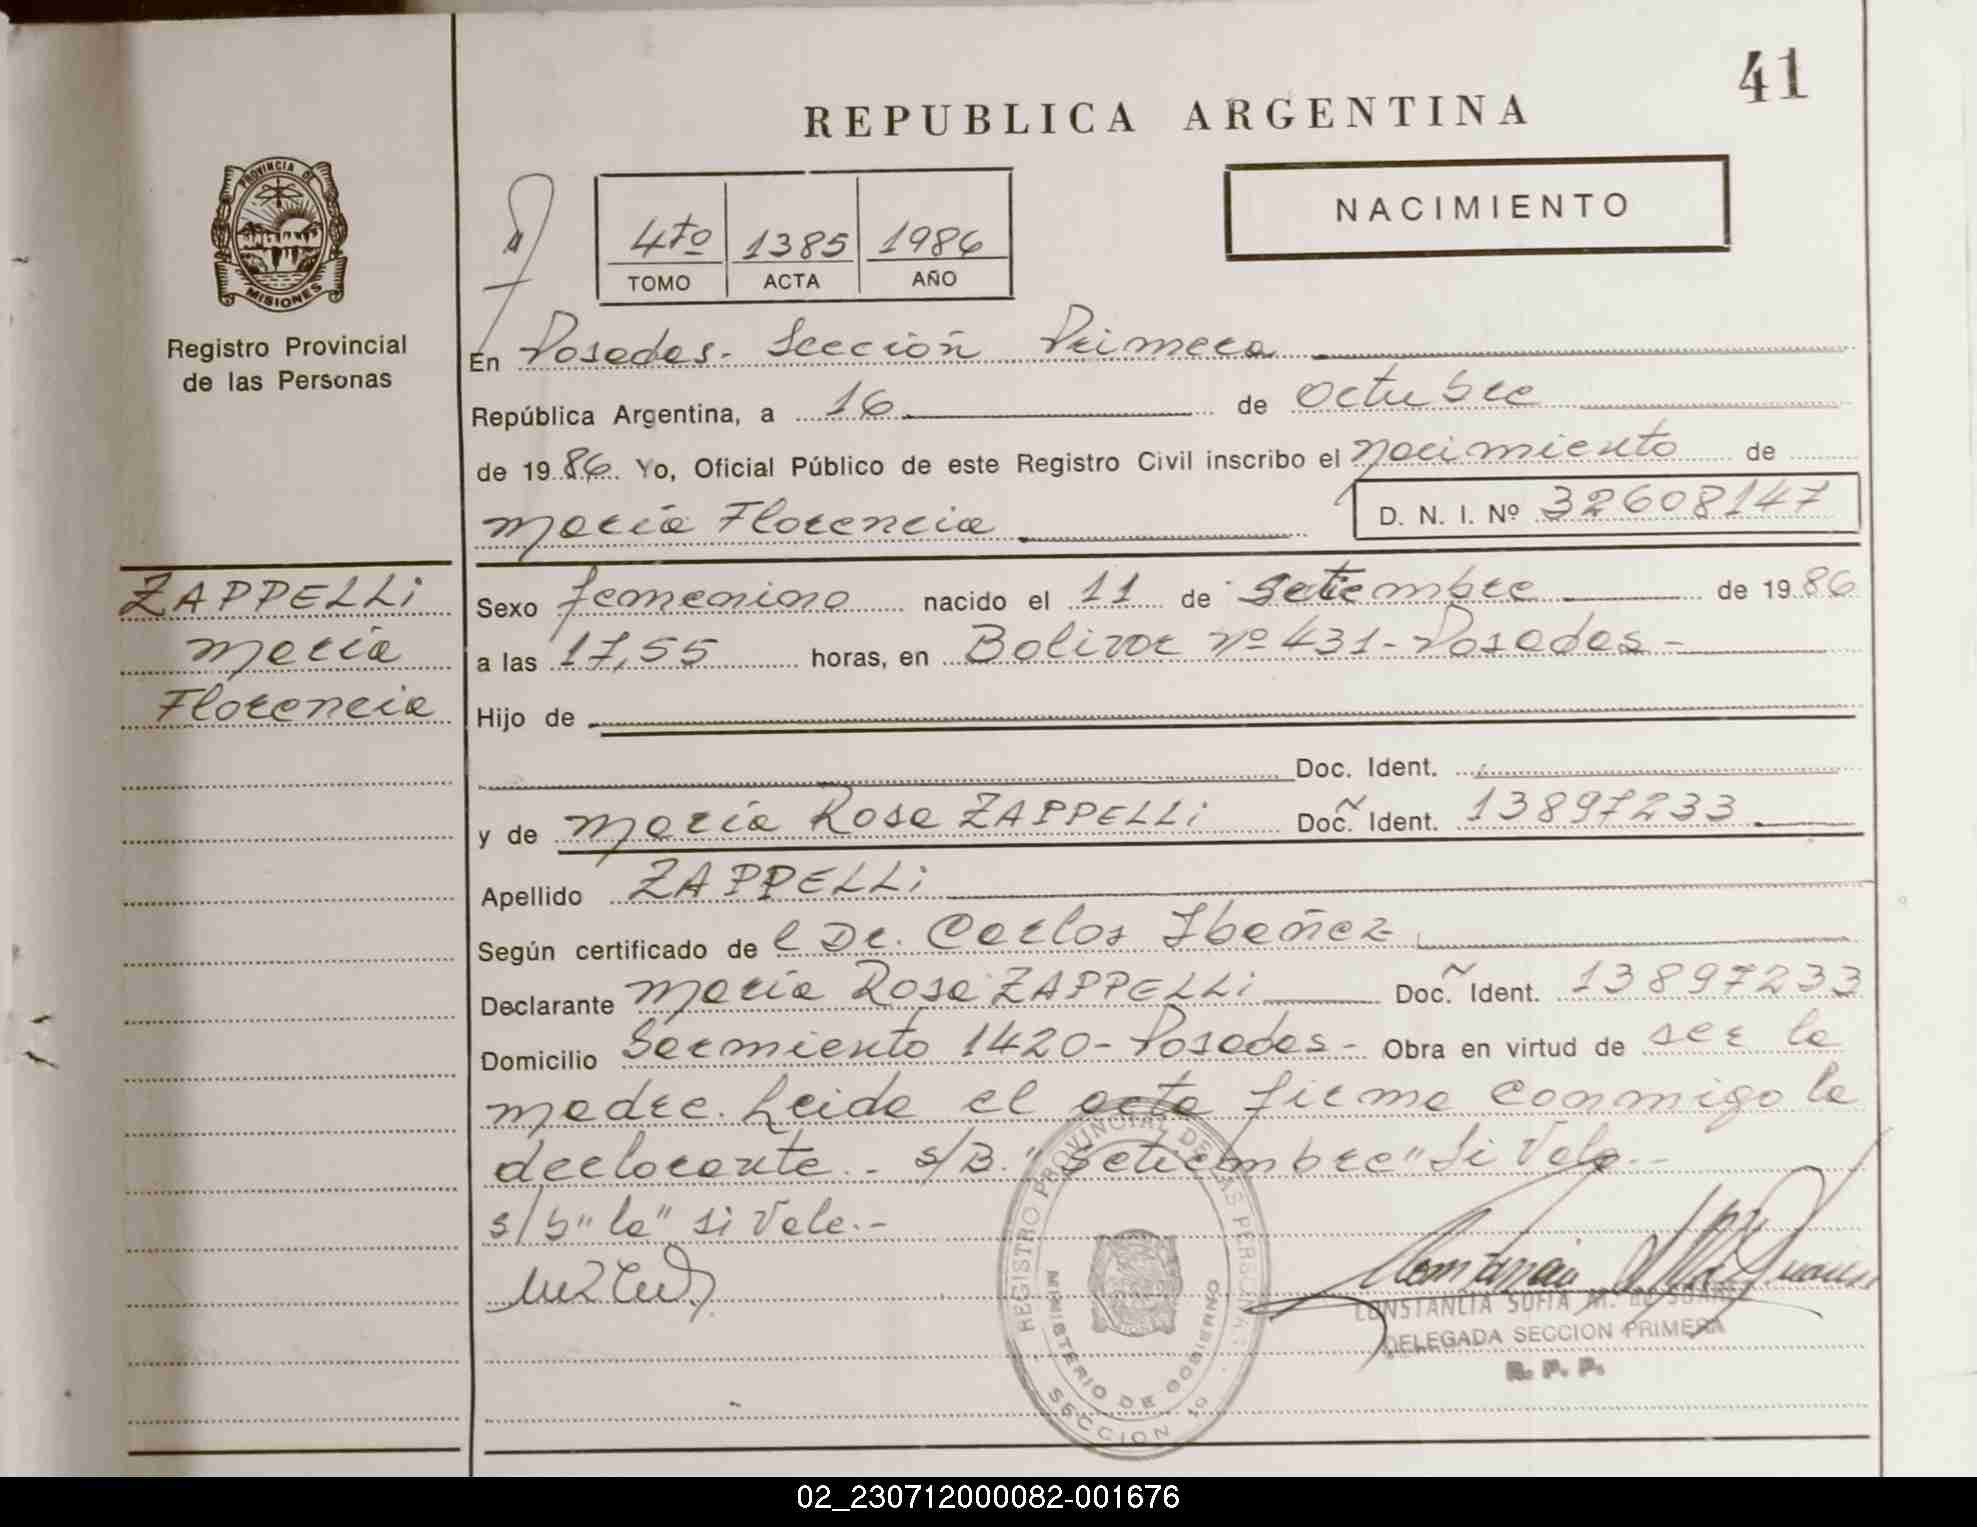 41
REPUBLICA ARGENTINA
NACIMIENTO
PROVINCIA DE
MISIONES
Registro Provincial
de las Personas
4to 1385 1986
TOMO ACTA AÑO
En Posadas. Sección Primera
República Argentina, a 16 de octubre
de 1986. Yo, Oficial Público de este Registro Civil inscribo el nacimiento de
maría Florencia D. N. I. Nº 32608147
ZAPPELLi
maría
Florencia
Sexo femenino nacido el 11 de setiembre de 1986
a las 17,55 horas, en Bolivar nº 431 - Posadas -
Hijo de
Doc. Ident.
y de maría Rosa ZAPPELLi Doc. Ident. 13897233
Apellido ZAPPELLi
Según certificado de l Dr. Carlos Ibañez
Declarante maría Rosa ZAPPELLi Doc. Ident. 13897233
Domicilio Sarmiento 1420 - Posadas - Obra en virtud de ser la
madre. Leida el acta firma conmigo la
declarante.- s/B. "setiembre" Si Vale.-
s/b "la" si Vale.-
REGISTRO PROVINCIAL DE LAS PERSONAS
MINISTERIO DE GOBIERNO
SECCION 1º
CONSTANCIA SOFIA M. DE SUAREZ
DELEGADA SECCION PRIMERA
R. P. P.
02_230712000082-001676